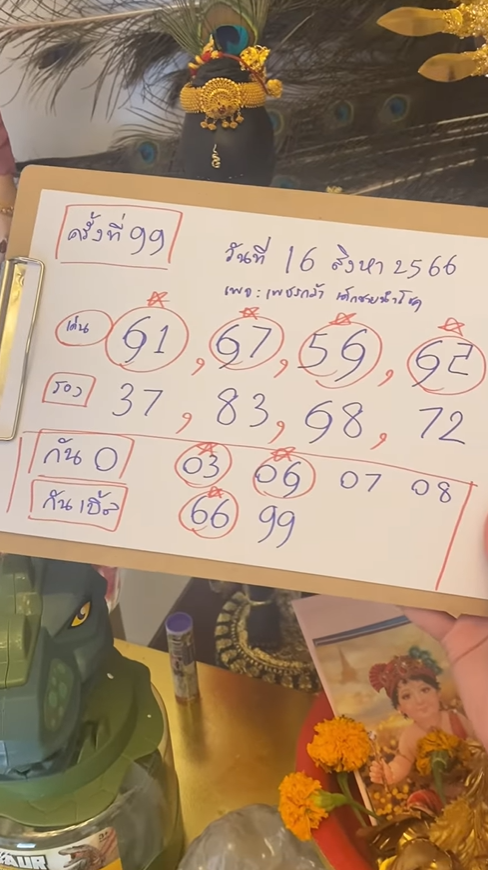 ครั้งที่ 99
วันที่ 16 สิงหา 2566
เพจ : เพชรกล้า เด็กชายนำโชค
เด่น 61, 67, 56, 62
รอง 37, 83, 68, 72
กัน 0 03 06 07 08
กันเบิ้ล 66 99
AUR